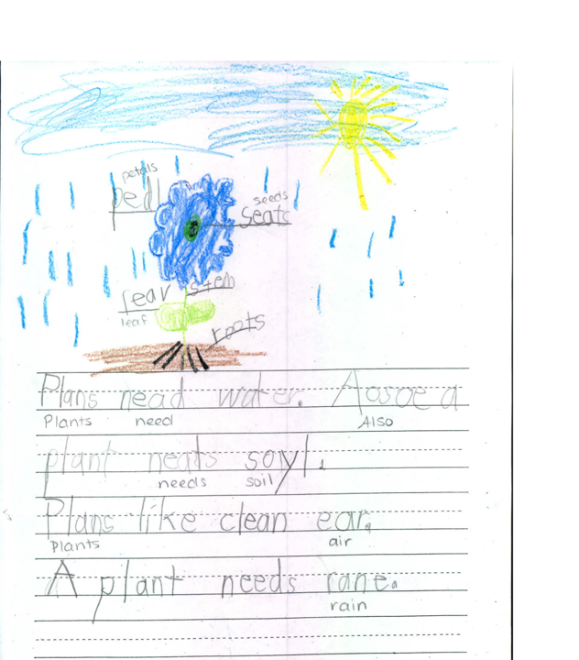 petals
pedl
seeds
seats
stem
lear
leaf
roots
Plans nead water. Aosoe a
Plants need Also
plant neats soyl.
needs soil
Plans like clean ear.
Plants air
A plant needs rane.
rain